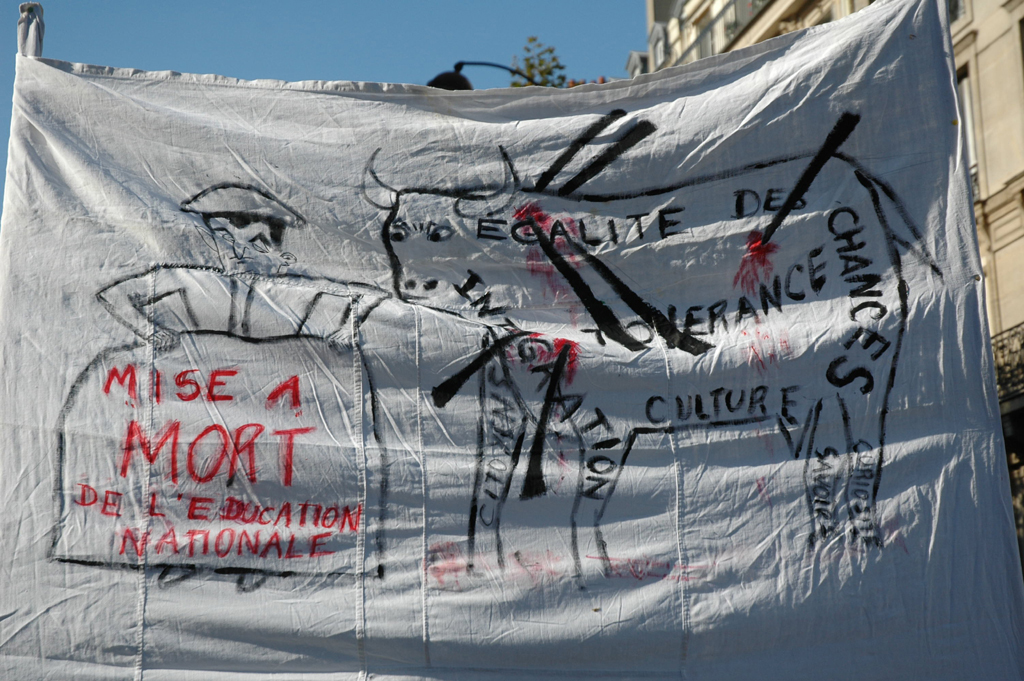 MISE A
MORT
DE L'EDUCATION
NATIONALE
EGALITE DES
CHANCES
TOLERANCE
INTEGRATION
CULTURE
CITOYEN
SAVOIRS